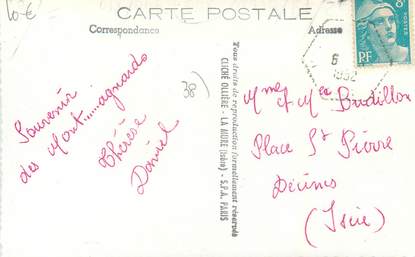 10€
CARTE POSTALE
Correspondance
Adresse
8F
POSTES
RF
6
1952
38)
Souvenir
des Mont.....agnards
Thérèse
Daniel
Tous droits de reproduction formellement réservés
CLICHÉ OLLIÈRE - LA MURE (Isère) - S.P.A. PARIS
Mme et Mr Budillon
Place St Pierre
Décines
(Isère)